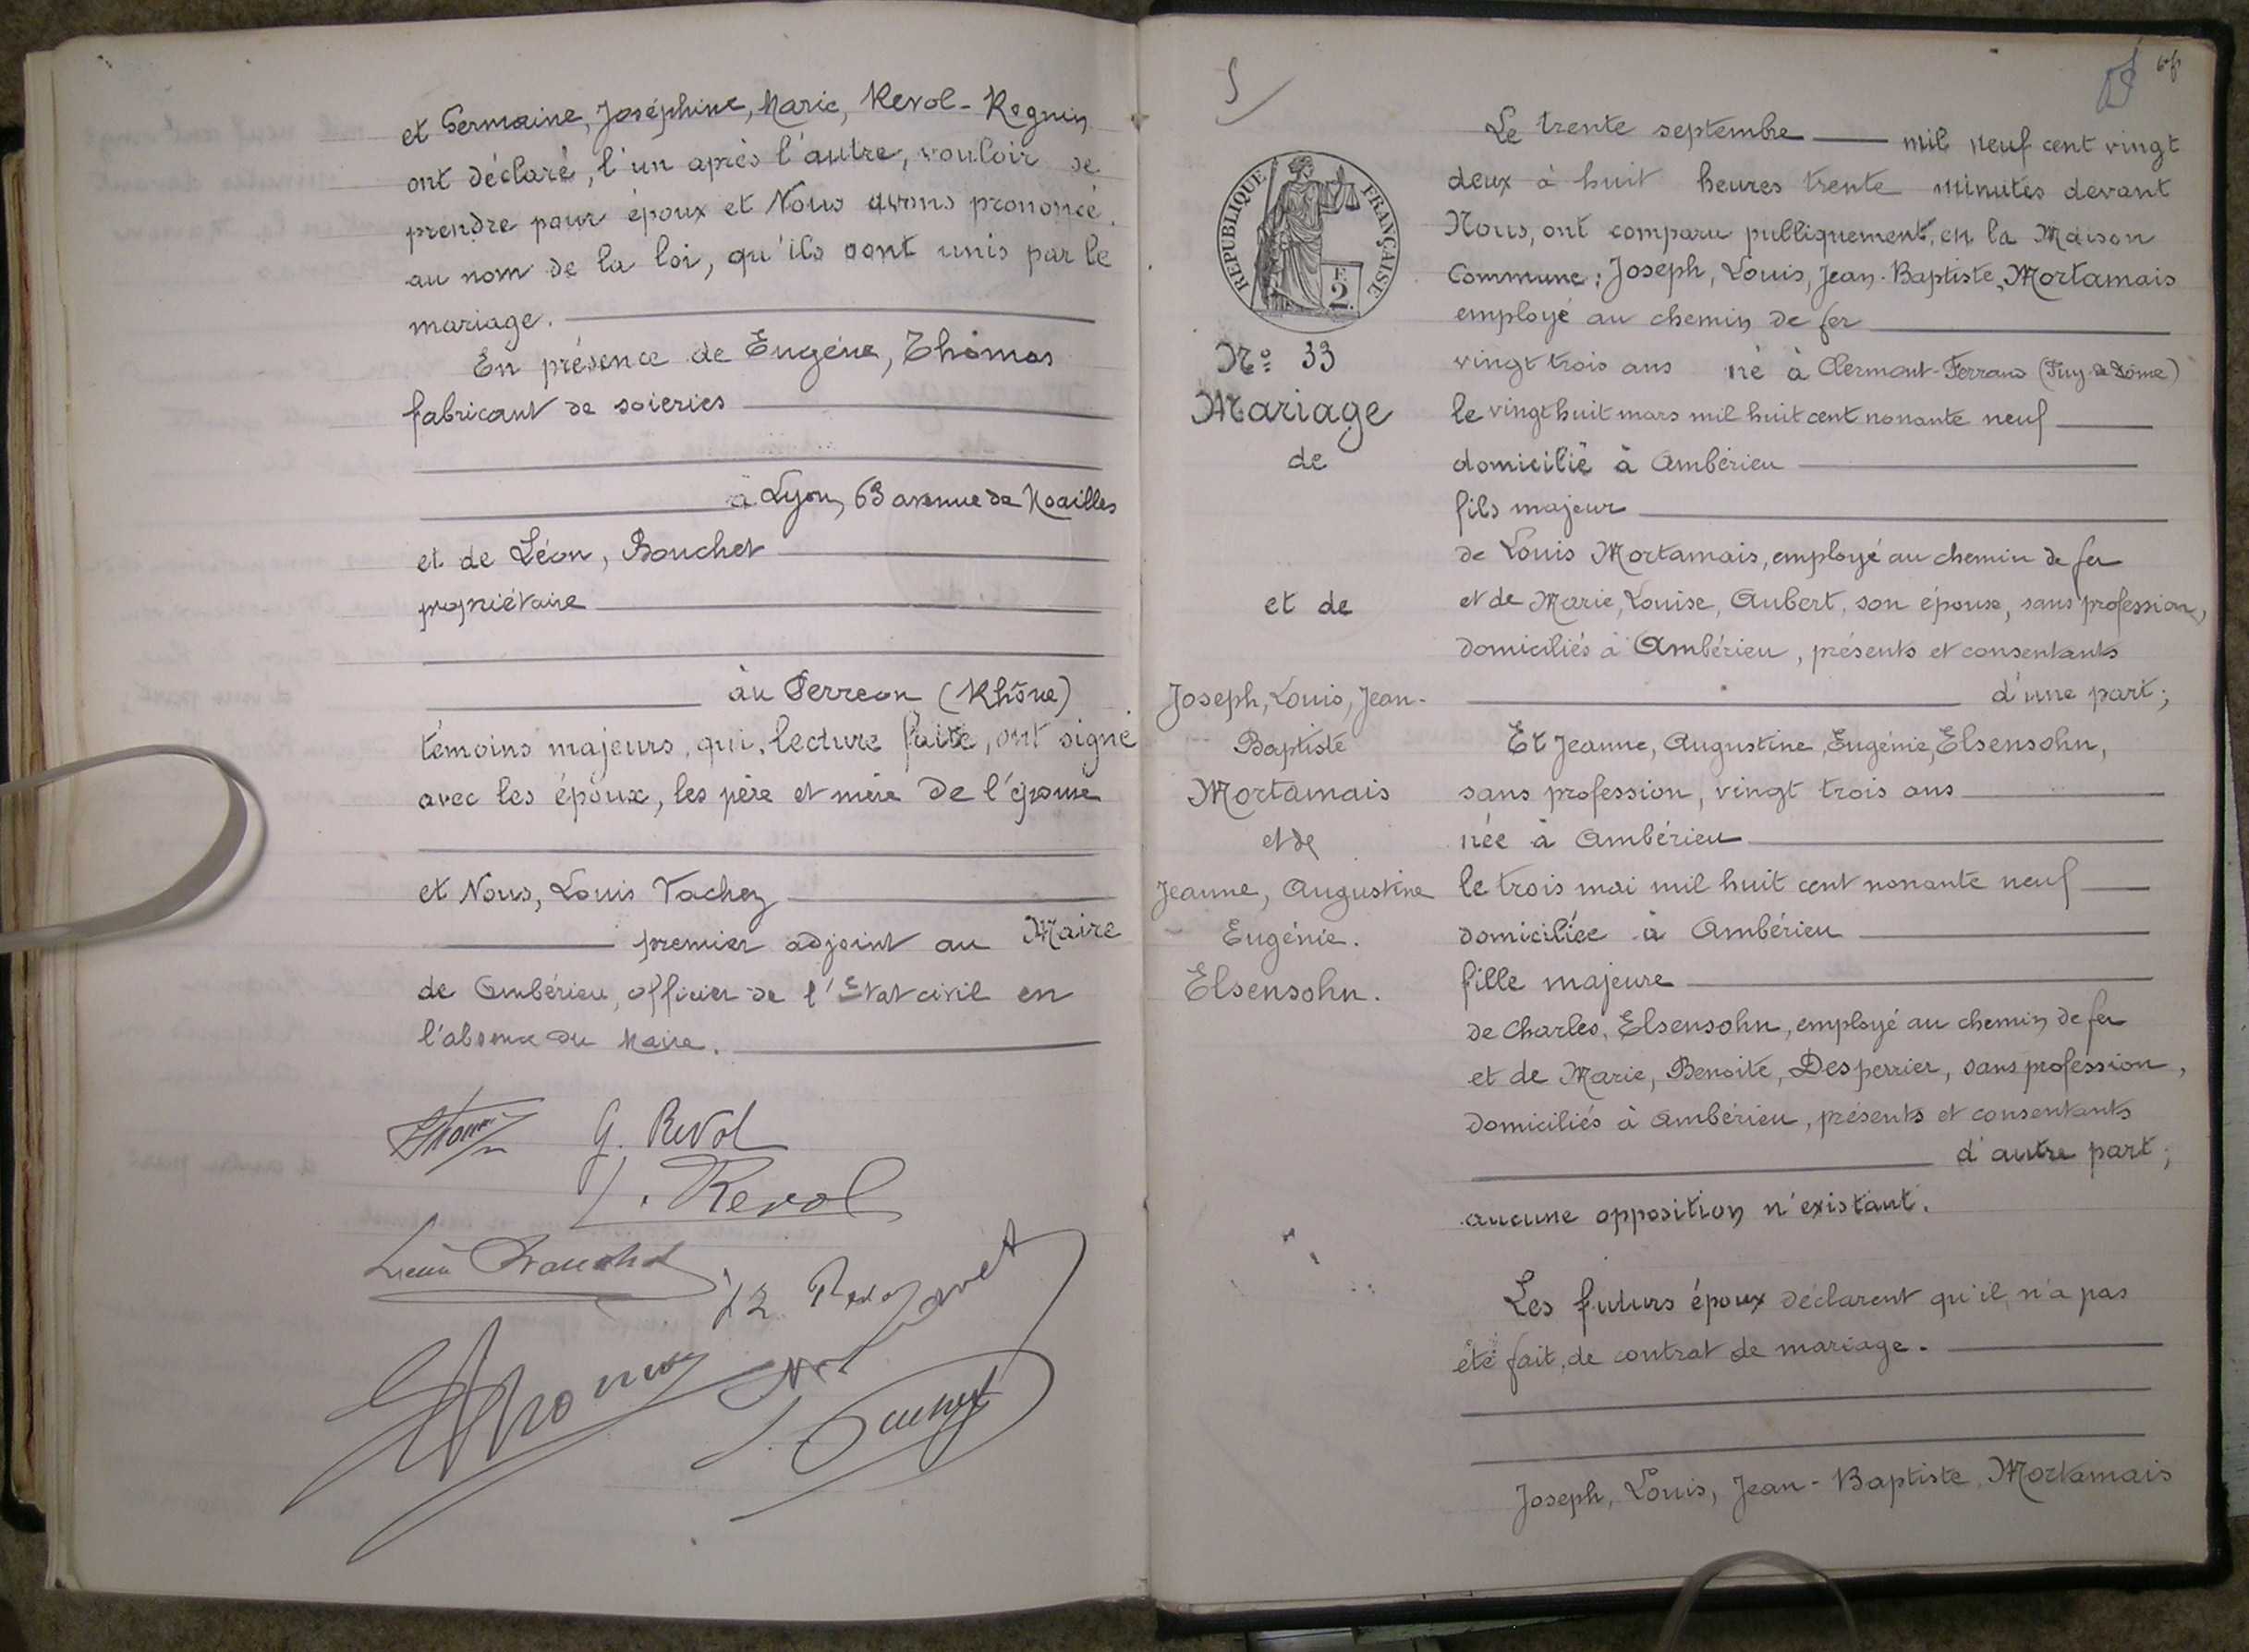 et Germaine, Joséphine, Marie, Revol-Roguin
ont déclaré, l'un après l'autre, vouloir se
prendre pour époux et Nous avons prononcé
au nom de la loi, qu'ils sont unis par le
mariage.
En présence de Eugène, Thomas
fabricant de soieries
à Lyon, 63 avenue de Noailles
et de Léon, Bouchet
propriétaire
au Perreon (Rhône)
témoins majeurs, qui, lecture faite, ont signé
avec les époux, les père et mère de l'épouse
et Nous, Louis Vachez
premier adjoint au Maire
de Ambérieu, officier de l'Etat civil en
l'absence du Maire.
G. Revol
Revol
Léon Bouchet
S
RÉPUBLIQUE FRANÇAISE
F.
2.
N° 33
Mariage
de
et de
Joseph, Louis, Jean-
Baptiste
Mortamais
et de
Jeanne, Augustine
Eugénie.
Elsensohn.
Le trente septembre mil neuf cent vingt
deux à huit heures trente minutes devant
Nous, ont comparu publiquement, en la Maison
Commune : Joseph, Louis, Jean-Baptiste, Mortamais
employé au chemin de fer
vingt trois ans né à Clermont-Ferrand (Puy de Dôme)
le vingt huit mars mil huit cent nonante neuf
domicilié à Ambérieu
fils majeur
de Louis Mortamais, employé au chemin de fer
et de Marie, Louise, Aubert, son épouse, sans profession,
domiciliés à Ambérieu, présents et consentants
d'une part ;
Et Jeanne, Augustine, Eugénie, Elsensohn,
sans profession, vingt trois ans
née à Ambérieu
le trois mai mil huit cent nonante neuf
domiciliée à Ambérieu
fille majeure
de Charles, Elsensohn, employé au chemin de fer
et de Marie, Benoite, Desperrier, sans profession,
domiciliés à Ambérieu, présents et consentants
d'autre part ;
aucune opposition n'existant.
Les futurs époux déclarent qu'il n'a pas
été fait, de contrat de mariage.
Joseph, Louis, Jean-Baptiste, Mortamais